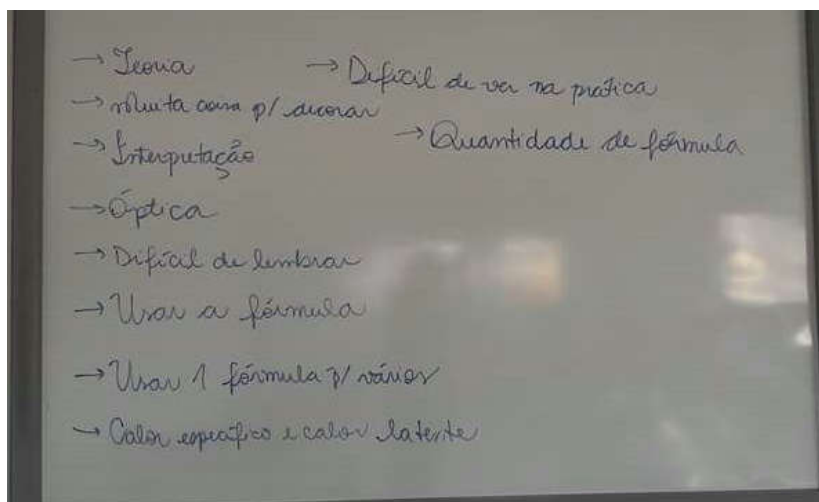 → Teoria
→ Muita coisa p/ decorar
→ Interpretação
→ Óptica
→ Difícil de lembrar
→ Usar a fórmula
→ Usar 1 fórmula p/ vários
→ Calor específico e calor latente
→ Difícil de ver na prática
→ Quantidade de fórmula